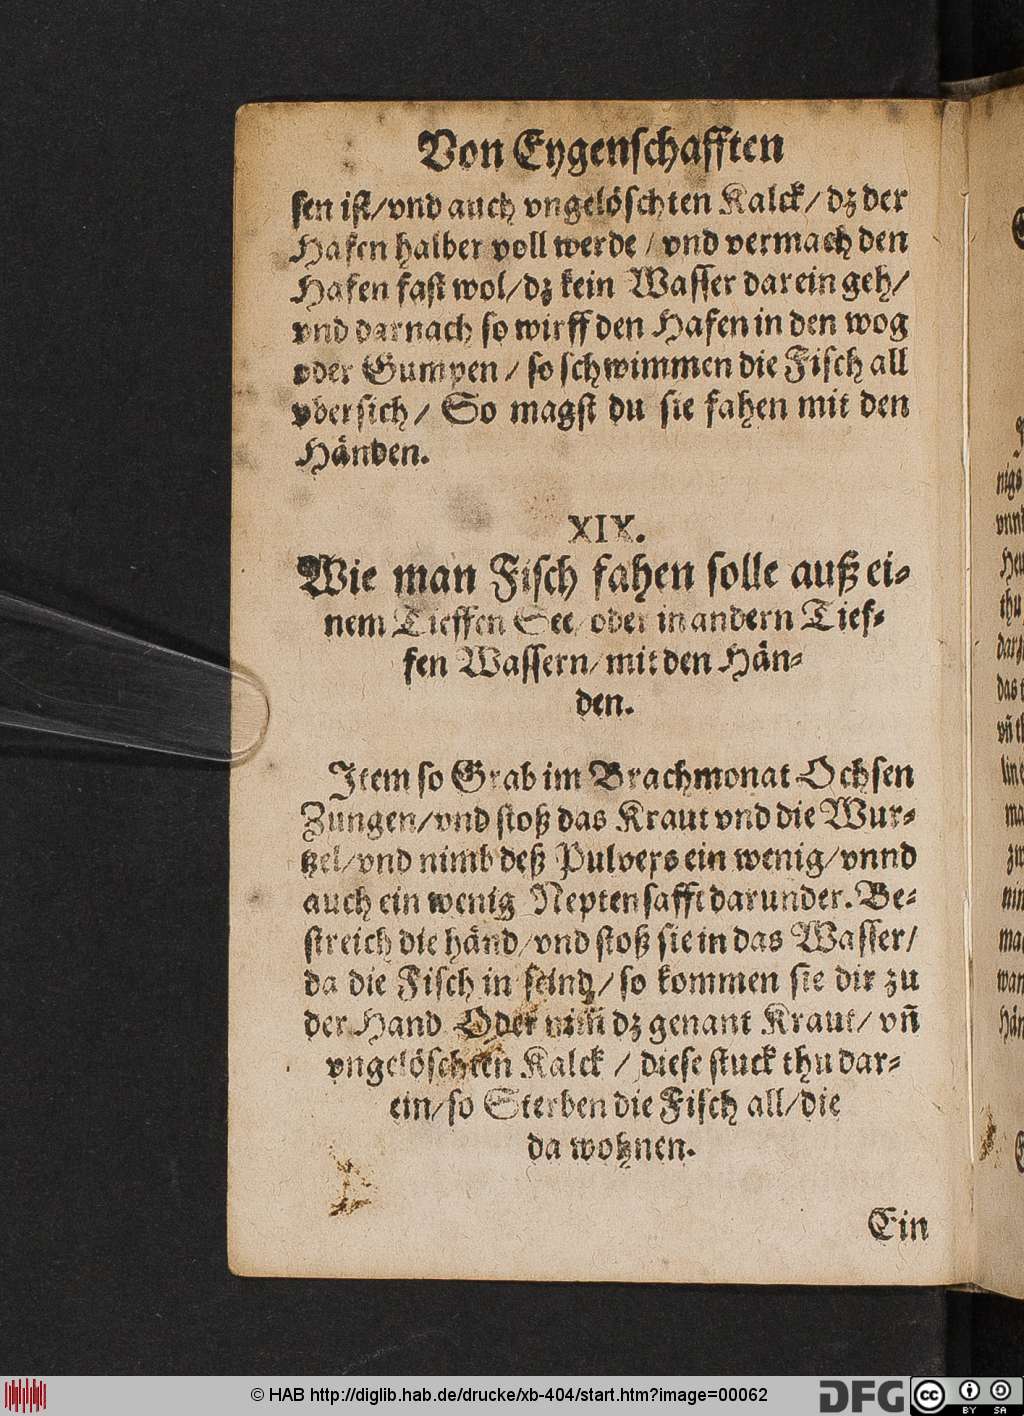 Von Eygenschafften
sen ist/vnd auch vngelöschten Kalck/ dz der
Hafen halber voll werde / vnd vermach den
Hafen fast wol/dz kein Wasser darein geh/
vnd darnach so wirff den Hafen in den wog
oder Gumpen / so schwimmen die Fisch all
vbersich/ So magst du sie fahen mit den
Händen.
XIX.
Wie man Fisch fahen solle auß ei-
nem Tieffen See/ oder in andern Tief-
fen Wassern/ mit den Hän-
den.
Item so Grab im Brachmonat Ochsen
Zungen/vnd stoß das Kraut vnd die Wur-
tzel/vnd nimb deß Pulvers ein wenig/vnnd
auch ein wenig Neptensafft darunder. Be-
streich die händ/vnd stoß sie in das Wasser/
da die Fisch in seind/ so kommen sie dir zu
der Hand Oder nim̃ dz genant Kraut/ vñ
vngelöschten Kalck / diese stuck thu dar-
ein/so Sterben die Fisch all/die
da wohnen.
Ein
nigs
das
zw
© HAB http://diglib.hab.de/drucke/xb-404/start.htm?image=00062
DFG
cc BY SA